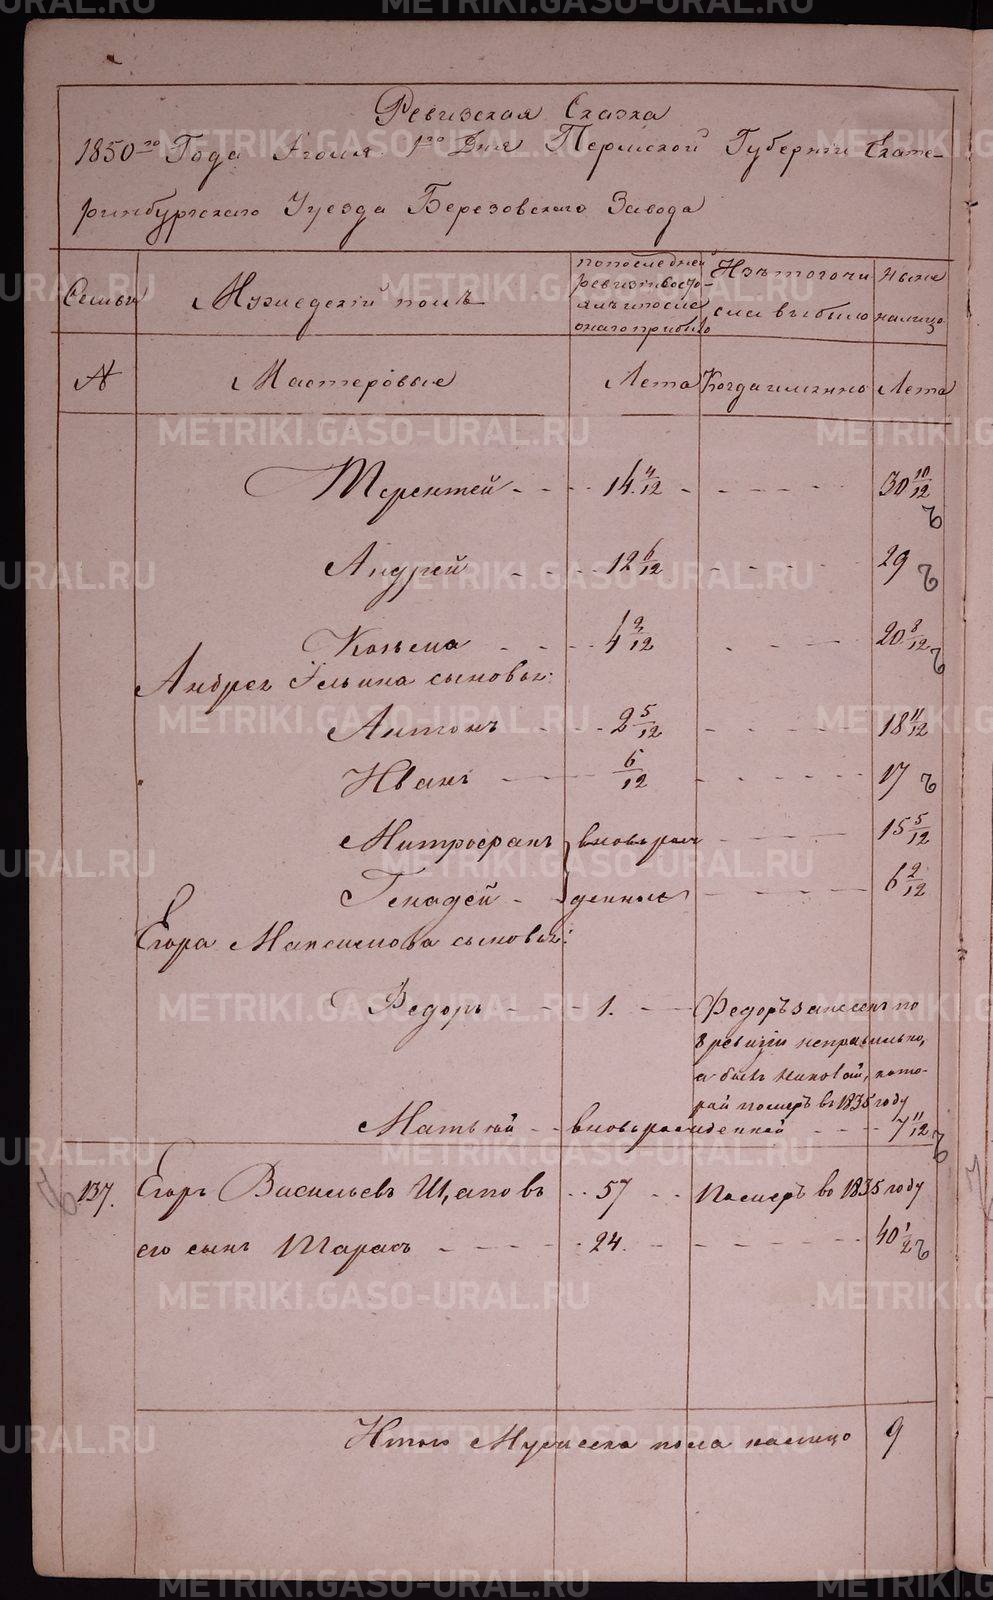 Ревизская Сказка
1850го Года Июля 1го Дня Пермской Губернии Екате-
ринбургскаго Уезда Березовскаго Завода
Семьи
Мужеский полъ
по последней
ревизии состо-
ялъ и после
онаго прибыло
Изъ того чи
сла выбыло
Ныне
налицо
№ Мастеровые Лета Когда именно Лета
Терентей - - - 14 4/12 - - - - - 30 10/12
Андрей - - - 12 6/12 - - - - 29
Козьма - - - 4 2/12 - - - 20 8/12
Андрея Ильина сыновья:
Антонъ - - - 2 5/12 - - - - - 18 11/12
Иванъ - - - 6/12 - - - - - 17
Митрофанъ вновь рож - - - - 15 5/12
Генадей - денные - - - - 6 2/12
Егора Максимова сыновья:
Федоръ - - - 1. - - Федоръ занесенъ по
8 ревизии неправильно,
а былъ
рый померъ въ 1835 году
Матвей - - вновь рожденной - - - 7 11/12
137. Егоръ Васильевъ Щаповъ - - 57 - - Померъ во 1835 году
его сынъ Тарасъ - - - - 24. - - - - - 40 1/2
Итого Мужеска пола налицо 9
METRIKI.GASO-URAL.RU